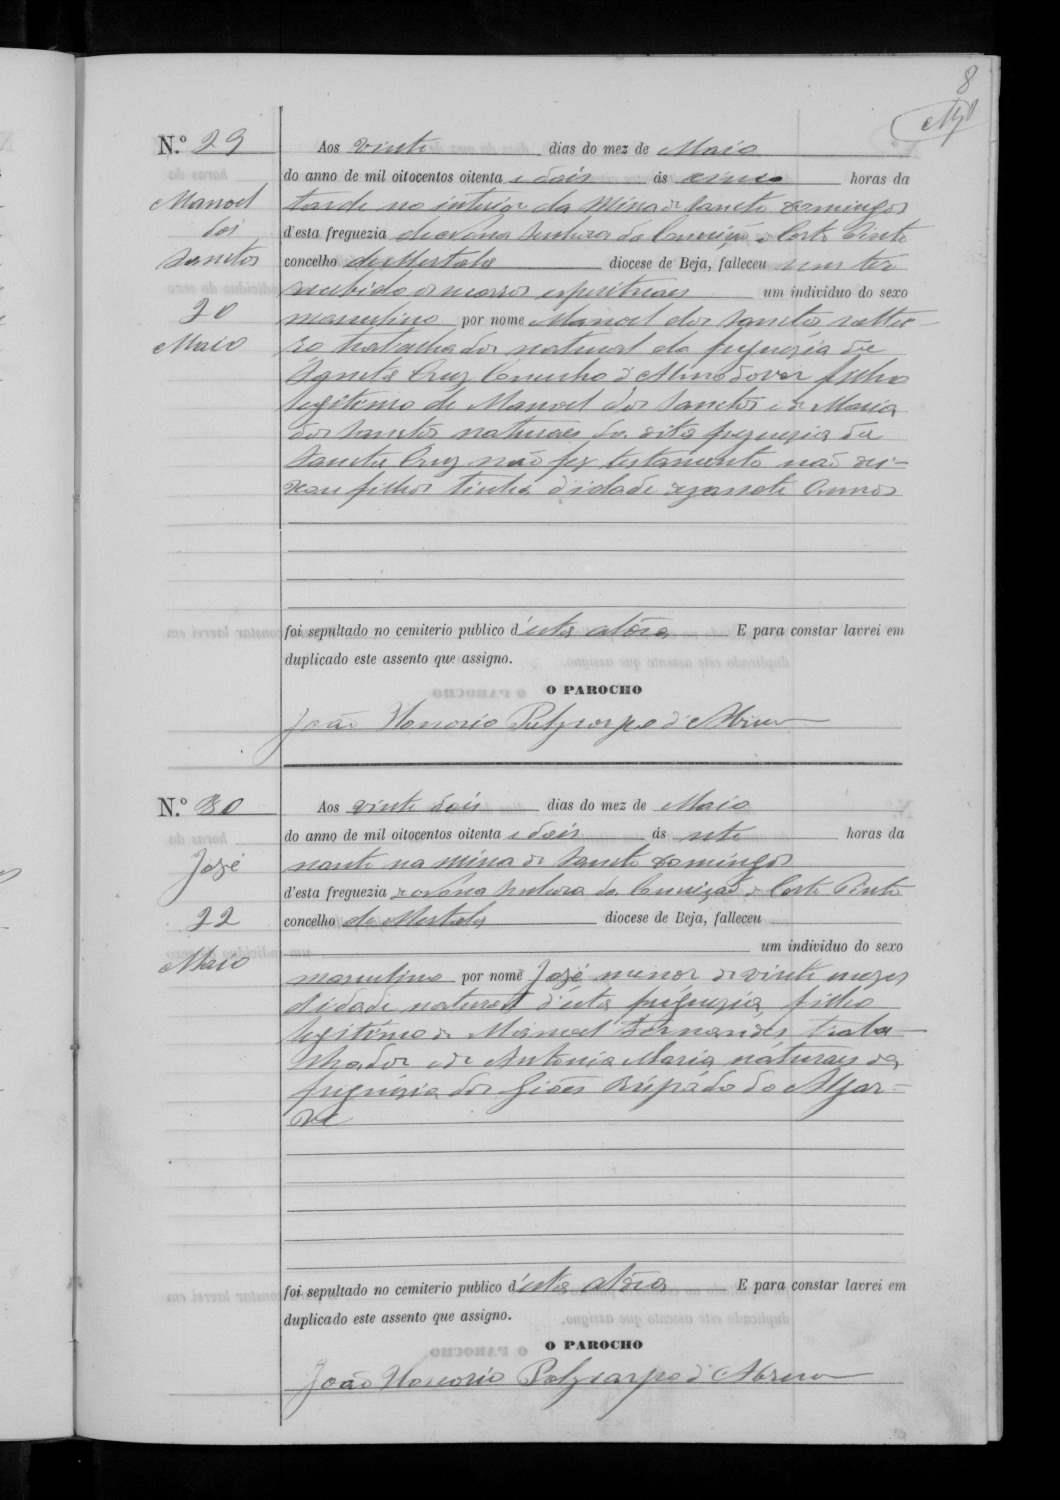 8
N.º 29
Manoel
dos
Sanctos
20
Maio
Aos vinte dias do mez de Maio
do anno de mil oitocentos oitenta e dois ás cinco horas da
tarde no interior da Mina de Sancto Domingos
d'esta freguezia de Nossa Senhora da Conceição de Corte Pinto
concelho de Mertola diocese de Beja, falleceu sem ter
recebido os socorros espirituaes um individuo do sexo
masculino por nome Manoel dos Sanctos soltei-
ro trabalhador natural da freguezia de
Sancta Cruz Concelho d'Almodovar filho
legitimo de Manoel dos Sanctos e de Maria
dos Sanctos naturaes da dita freguezia de
Sancta Cruz não fez testamento não dei-
xou filhos tinha d'idade dezasete annos
foi sepultado no cemiterio publico d'esta aldêa E para constar lavrei em
duplicado este assento que assigno.
O PAROCHO
João Honorio Polycarpo d'Abreu
N.º 30
José
22
Maio
Aos vinte dois dias do mez de Maio
do anno de mil oitocentos oitenta e dois ás sete horas da
noute na Mina de Sancto Domingos
d'esta freguezia de Nossa Senhora da Conceição de Corte Pinto
concelho de Mertola diocese de Beja, falleceu
um individuo do sexo
masculino por nome José menor de vinte mezes
d'idade natural d'esta freguezia, filho
legitimo de Manoel Fernandes traba-
lhador e de Antonia Maria naturaes da
freguezia dos Giões Bispado do Algar-
ve
foi sepultado no cemiterio publico d'esta aldêa E para constar lavrei em
duplicado este assento que assigno.
O PAROCHO
João Honorio Polycarpo d'Abreu